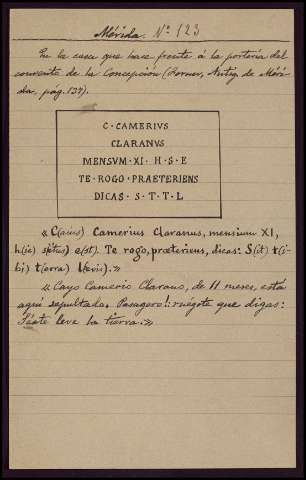 Mérida. Nº 123
En la casa que hace frente á la portería del
convento de la Concepción (Forner, Antig. de Méri-
da, pág. 137).
C · CAMERIVS
CLARANVS
MENSVM · XI · H · S · E
TE · ROGO · PRAETERIENS
DICAS · S · T · T · L
« C(aius) Camerius Claranus, mensium XI,
h(ic) s(itus) e(st). Te rogo, praeteriens, dicas: S(it) t(i-
bi) t(erra) l(evis). »
« Cayo Camerio Clarano, de 11 meses, está
aquí sepultado. Pasagero!: ruégote que digas:
Séate leve la tierra. »